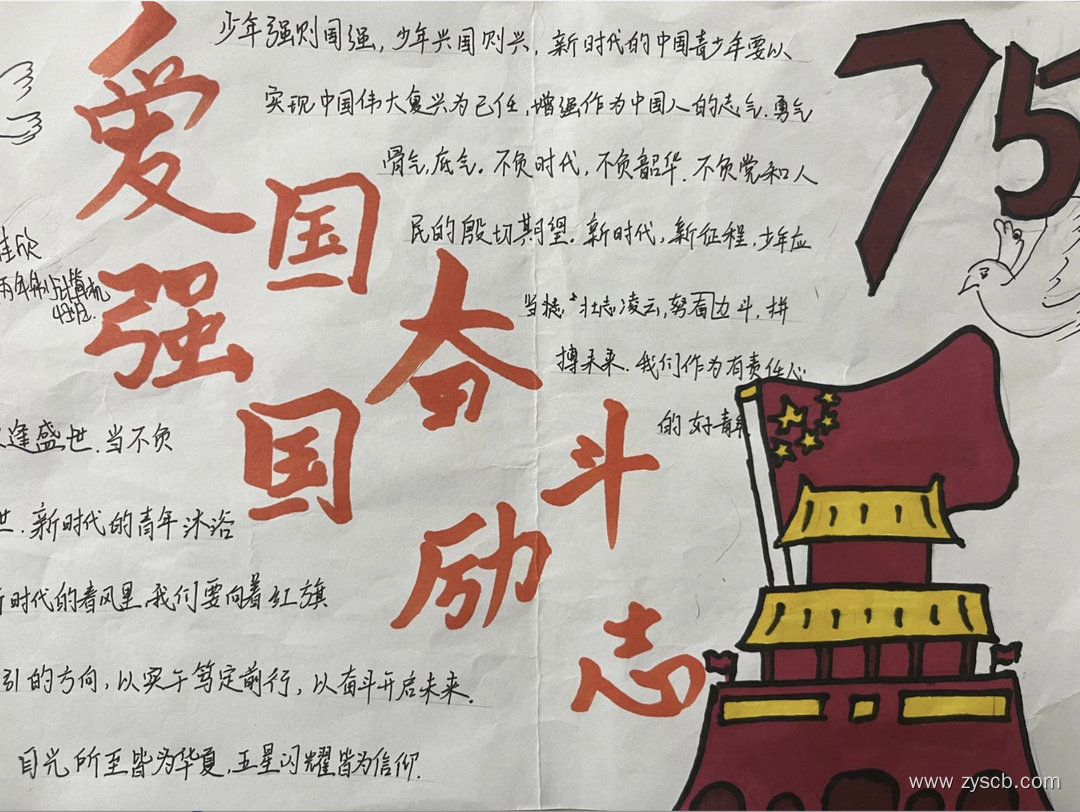 爱国
强国
奋斗
励志
75
少年强则国强,少年兴国则兴,新时代的中国青少年要以
实现中国伟大复兴为己任,增强作为中国人的志气.勇气
骨气,底气。不负时代,不负韶华.不负党和人
民的殷切期望.新时代,新征程,少年应
当志壮志凌云,努力奋斗,拼
搏未来.我们作为有责任心
的好青年
佳欣
两年制计算机
4班
逢盛世.当不负
世.新时代的青年沐浴
新时代的春风里,我们要向着红旗
引的方向,以实干笃定前行,以奋斗开启未来.
目光所至皆为华夏,五星闪耀皆为信仰.
www.zyscb.com